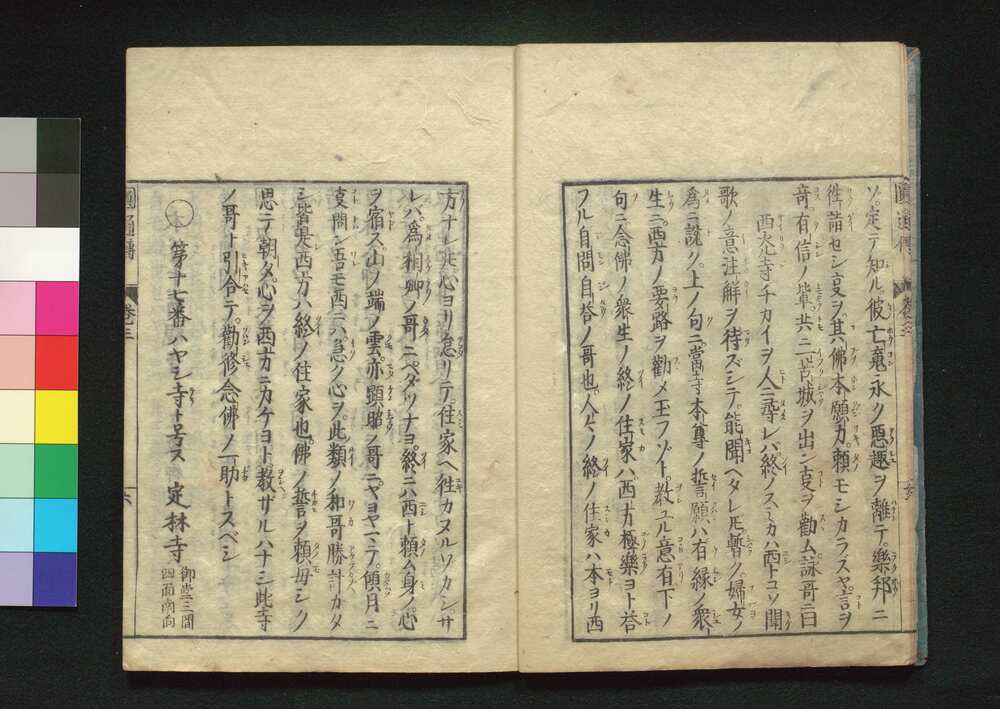 ソ。定テ知ル彼亡魂永ク悪趣ヲ離テ。樂邦ニ
徃詣セシ㕝ヲ。其佛本願力。頼モシカラスヤ。言ヲ
竒有信ノ輩。共ニ苦城ヲ出ン㕝ヲ勸ム。詠哥ニ曰
西光寺チカイヲ人ニ尋レバ終ノスミカハ西トコソ聞
歌ノ意注解ヲ待ズシテ能聞ヘタレ𪜈暫ク婦女ノ
爲ニ說ク。上ノ句ニ當寺本尊ノ誓願ハ有縁ノ衆
生ニ西方ノ要路ヲ勸メ玉フゾト。教ユル意有下ノ
句ニ念佛ノ衆生ノ終ノ住家ハ西方極樂ヨト荅
フル自問自荅ノ哥也。人人ノ終ノ住家ハ本ヨリ西
方ナレ𪜈心ヨリ怠リテ。住家ヘ徃カヌルソカシ。サ
レバ。爲相卿ノ哥ニヘダツナヨ。終ニハ西ト頼ム身ノ。心
ヲ宿ス山ノ端ノ雲。亦顕昭ノ哥ニ。ヤヨヤマテ。傾月ニ
㕝問ン吾モ西ニハ急ク心ヲ。此類ノ和哥勝計カタ
シ皆是西方ハ終ノ住家也。佛ノ誓ヲ頼母シク
思テ朝夕。心ヲ西方ニカケヨト教ザルハナシ此寺
ノ哥ト引合テ。勸修念佛ノ一助トスベシ
第十七番ハヤシ寺ト号ス 定林寺 御堂三間
四面南向
圓通傳 巻三 六